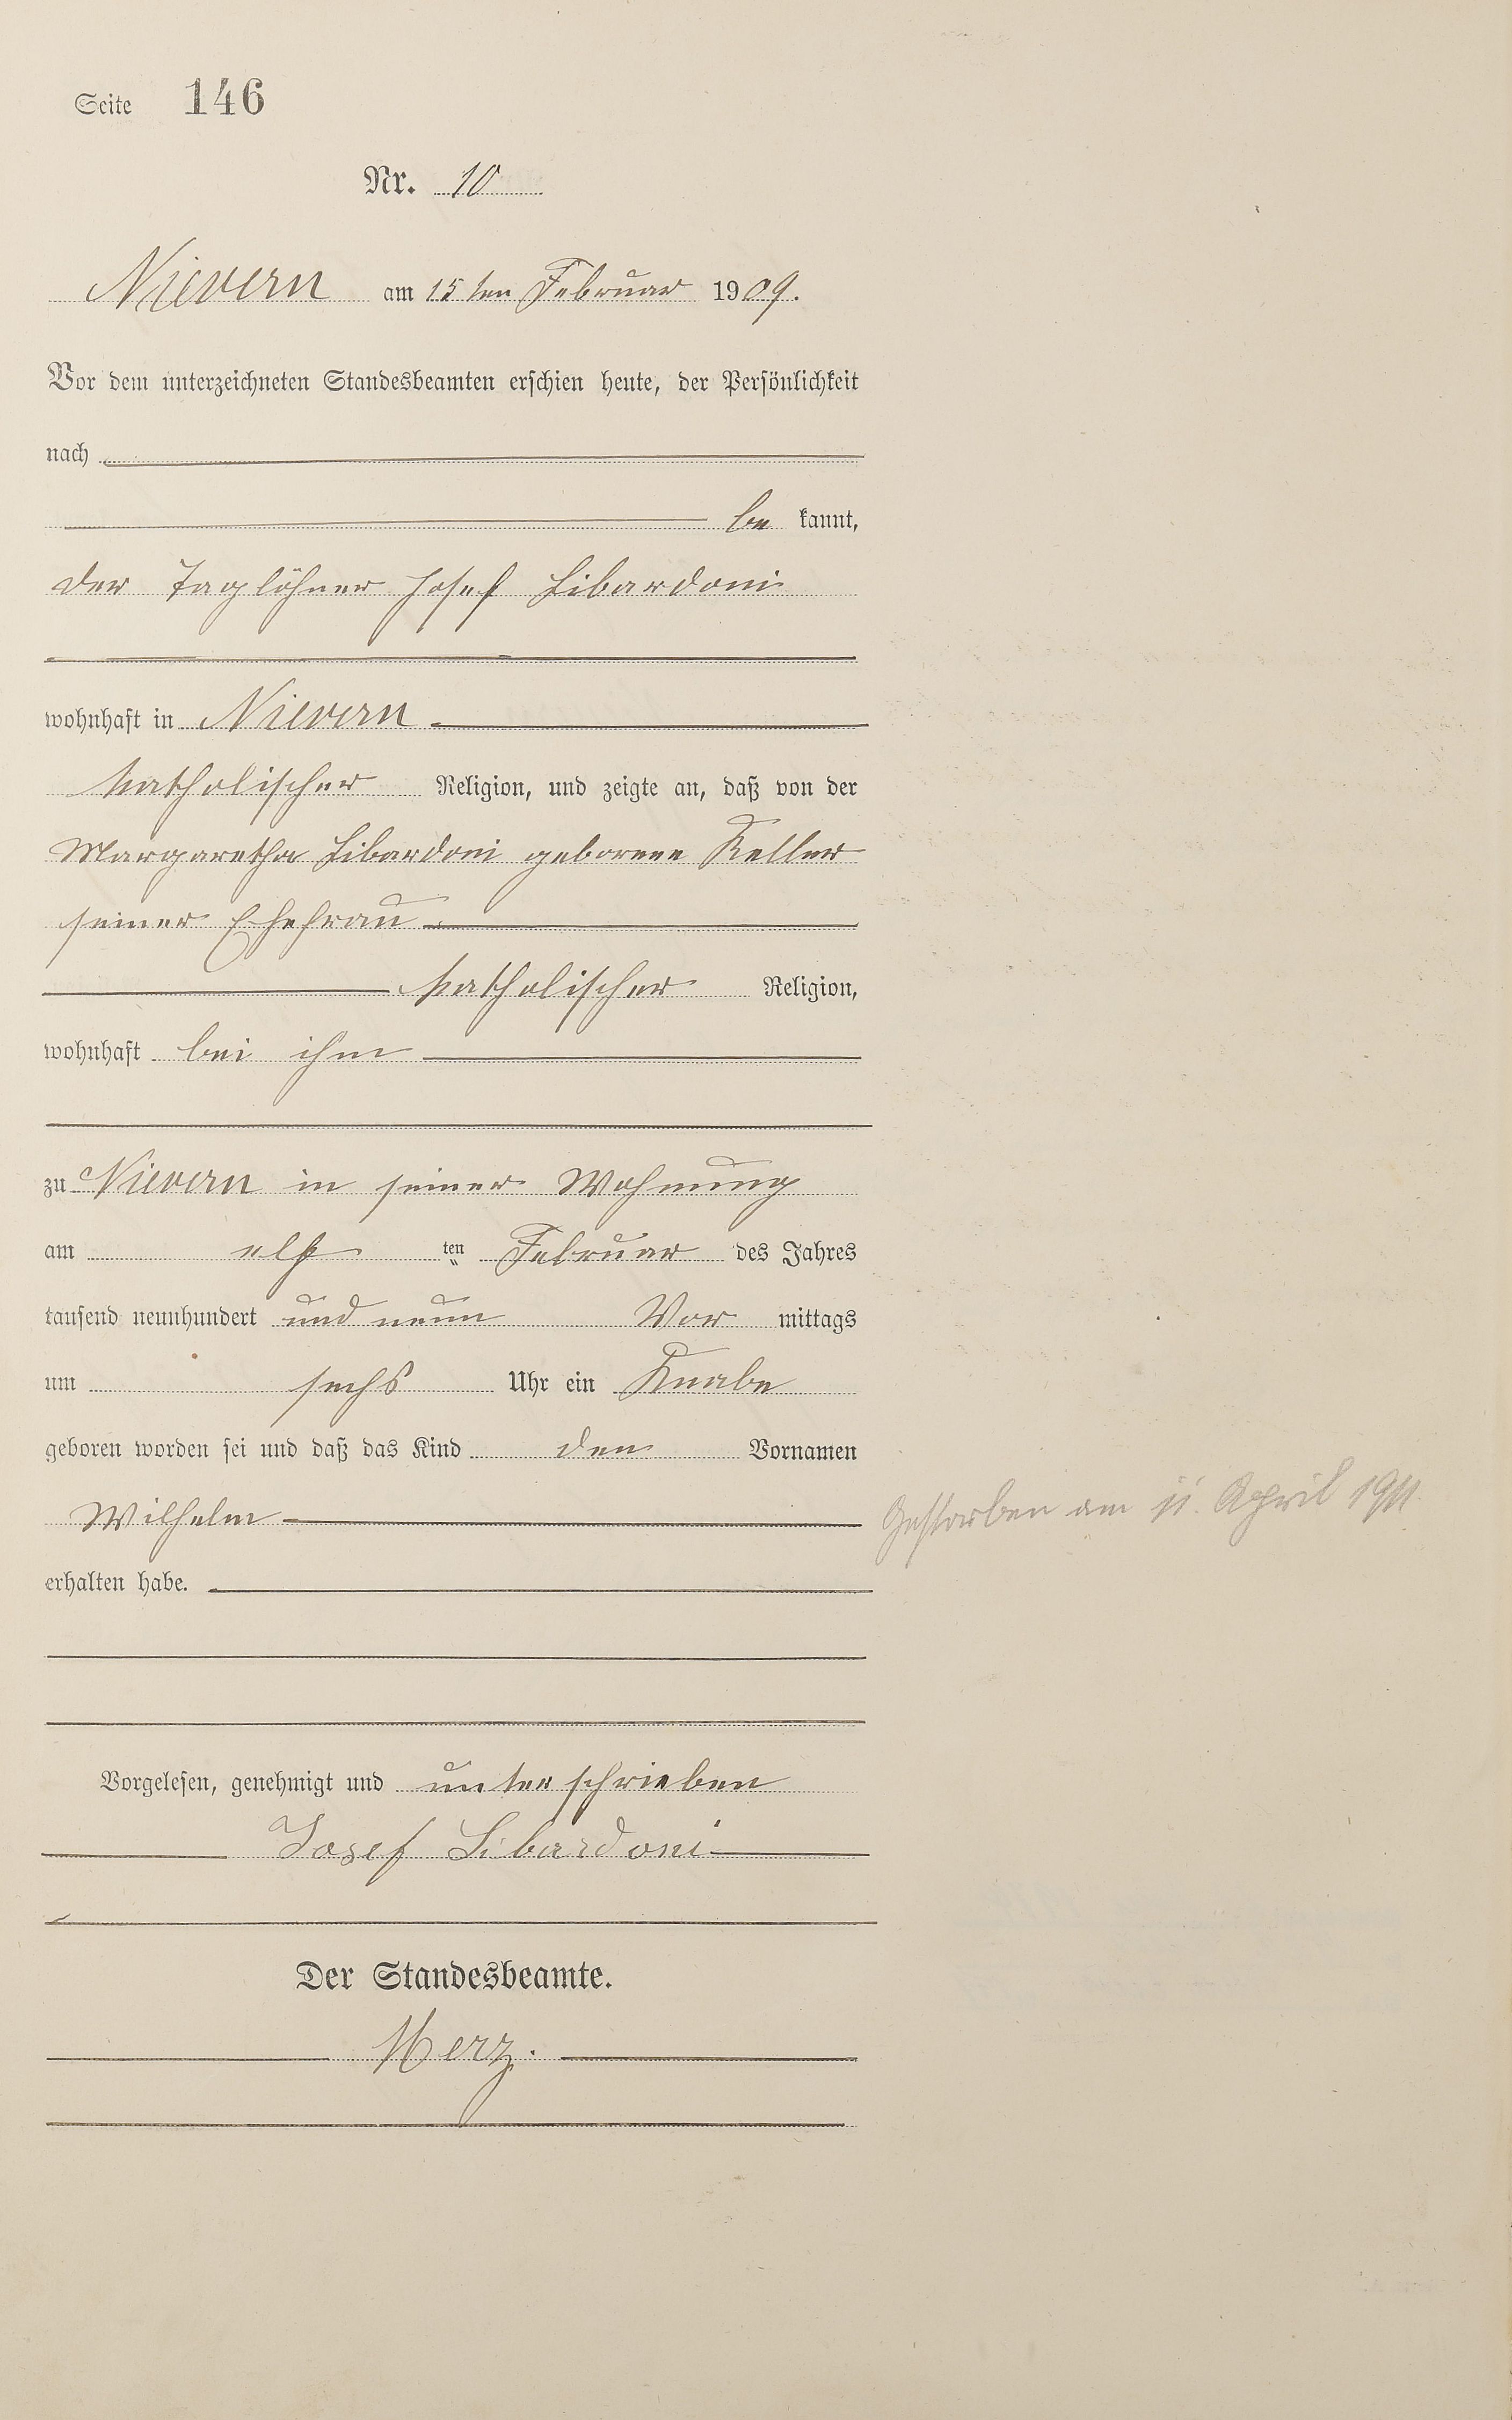 Seite 146
Nr. 10
Nievern am 15ten Februar 1909.
Vor dem unterzeichneten Standesbeamten erschien heute, der Persönlichkeit
nach
be kannt,
der Taglöhner Josef Libardoni
wohnhaft in Nievern
katholischer Religion, und zeigte an, daß von der
Margaretha Libardoni geborene Keller
seiner Ehefrau
katholischer Religion,
wohnhaft bei ihm
zu Nievern in seiner Wohnung
am elf ten Februar des Jahres
tausend neunhundert und neun Vor mittags
um sechs Uhr ein Knabe
geboren worden sei und daß das Kind den Vornamen
Wilhelm
Gestorben am 11. April 1911.
erhalten habe.
Vorgelesen, genehmigt und unterschrieben
Josef Libardoni
Der Standesbeamte.
Merz.